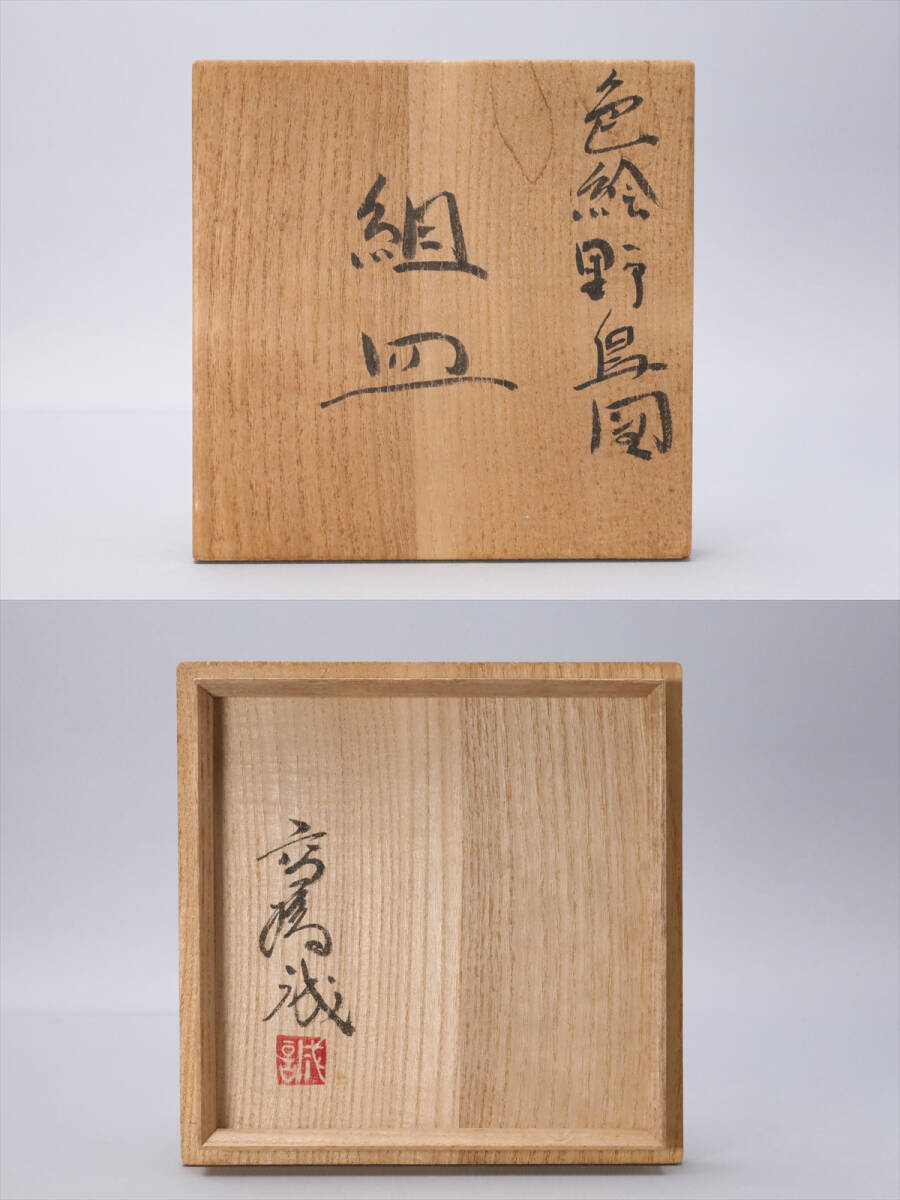 色絵野鳥図
組皿
高橋誠
誠